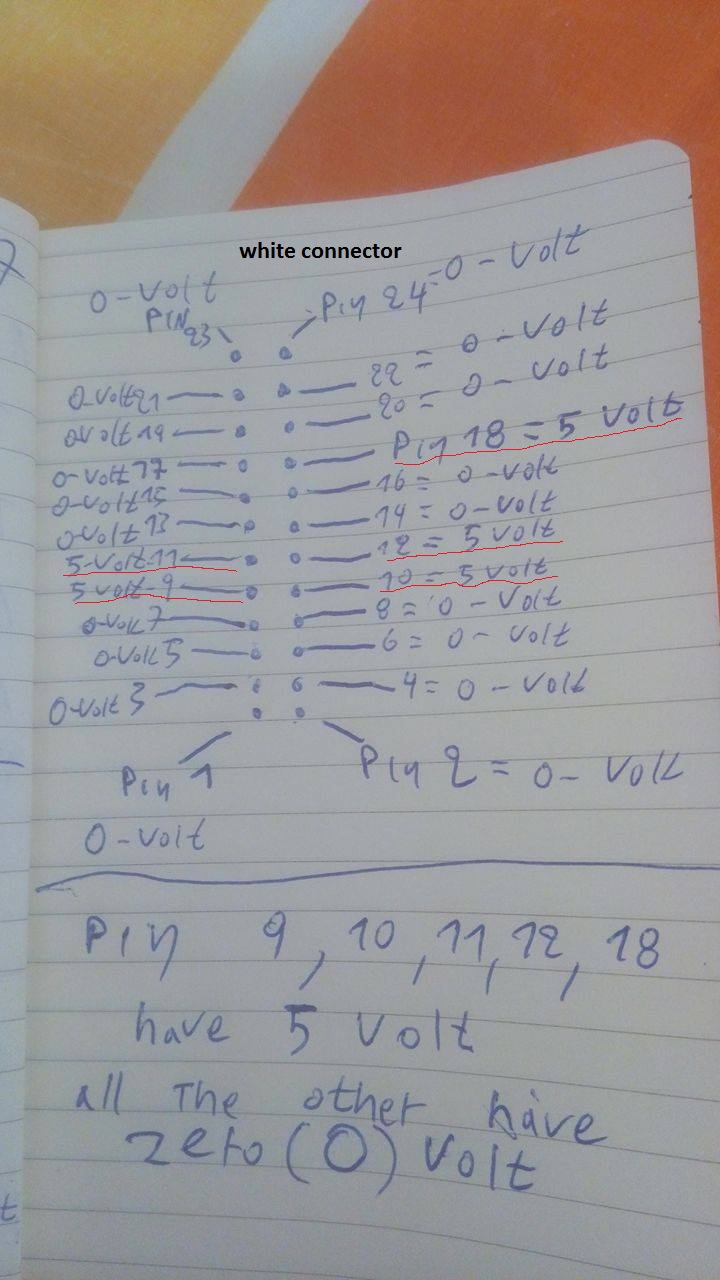 white connector
0-Volt
PIN 23
Pin 24 = 0 - Volt
22 = 0 - Volt
0-Volt 21
20 = 0 - Volt
0-Volt 19
Pin 18 = 5 Volt
0-Volt 17
16 = 0-Volt
0-Volt 15
14 = 0-Volt
0-Volt 13
12 = 5 Volt
5-Volt-11
10 = 5 Volt
5 Volt-9
8 = 0 - Volt
0-Volt 7
6 = 0 - Volt
0-Volt 5
4 = 0 - Volt
0-Volt 3
Pin 1
Pin 2 = 0 - Volt
0-Volt
Pin 9, 10, 11, 12, 18
have 5 Volt
all The other have
zero (0) Volt